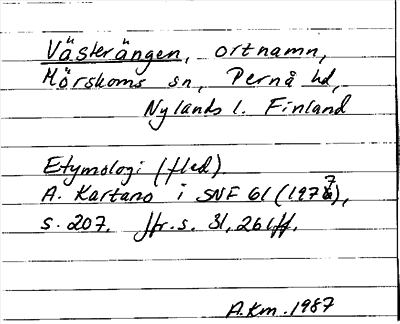 Västerängen, ortnamn,
Mörskoms sn, Pernå hd,
Nylands l. Finland
Etymologi (fled)
A. Kartano i SNF 61 (1977),
s. 207. Jfr. s. 31, 261ff.
A.Km. 1987